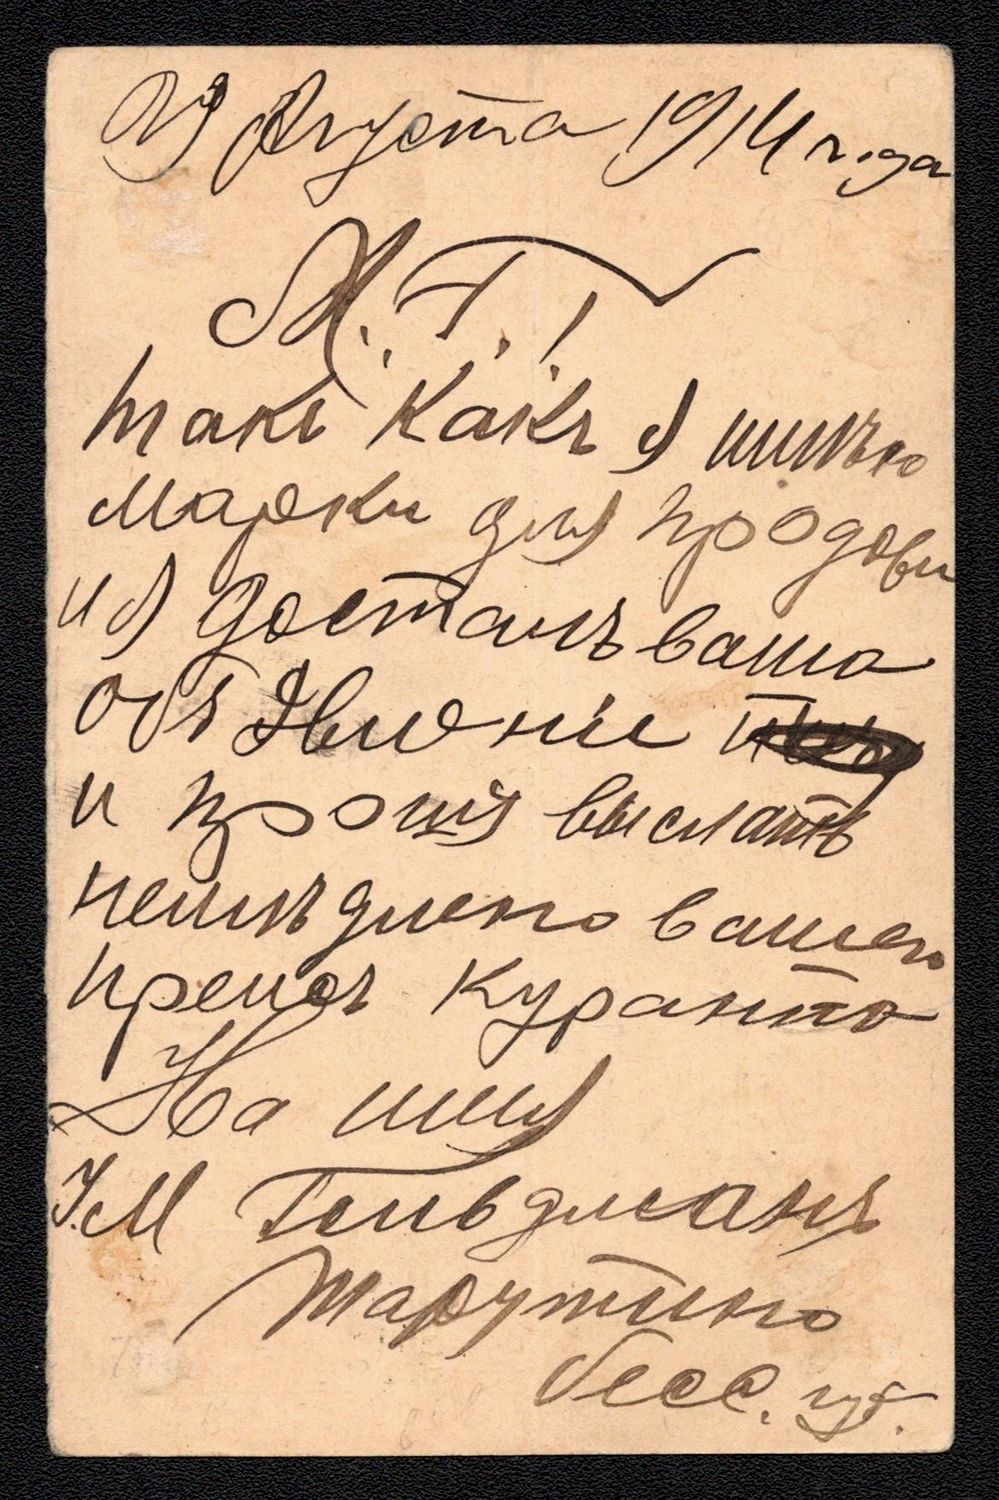 29 Августа 1914 года
М. Г.!
такъ какъ я имѣю
марки для продови
и я досталъ ваша
объ Явление
и прошу выслать
немѣдлено вашего
прейсъ куранто
На имя
И. М Гольдманъ
Тарутино
бесс. губ.